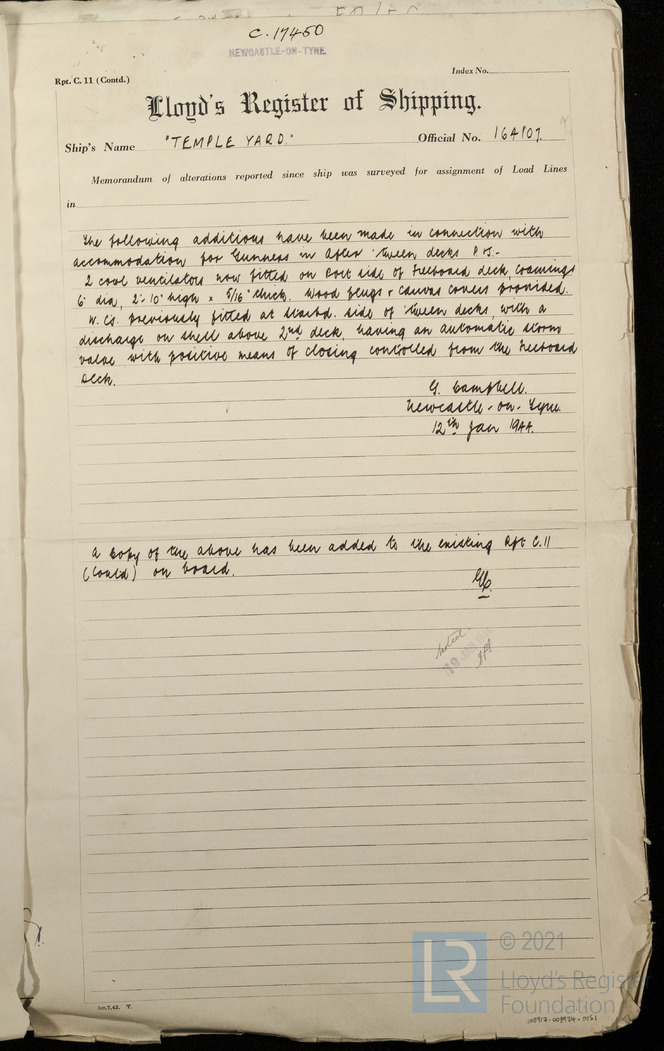 C. 17450
NEWCASTLE-ON-TYNE
Rpt. C. 11 (Contd.)
Index No.
Lloyd's Register of Shipping.
Ship's Name "TEMPLE YARD."
Official No. 164107.
Memorandum of alterations reported since ship was surveyed for assignment of Load Lines
in
The following additions have been made in connection with
accommodation for Gunners in After 'tween decks P.S.-
2 cowl ventilators now fitted on Port side of freeboard deck, coamings
6" dia, 2'-10" high x 5/16" thick. Wood plugs & canvas covers provided.
W.Cs. previously fitted at starbd. side of 'tween decks, with a
discharge on shell above 2nd deck, having an automatic storm
valve with positive means of closing controlled from the freeboard
Deck.
G. Campbell.
Newcastle-on-Tyne.
12th Jan 1944.
A copy of the above has been added to the existing Rpt C.11
(Contd) on board.
GC.
noted
© 2021
Lloyd's Register
Foundation
008917-008924-0151